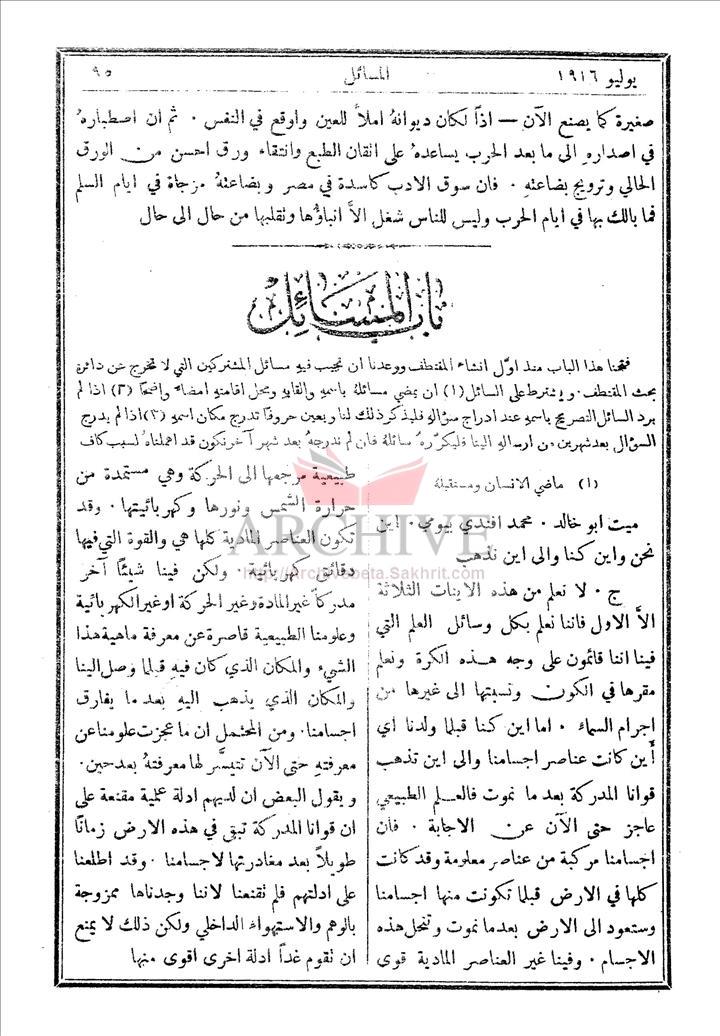 يوليو ١٩١٦ المسائل ٩٥
صغيرة كما يصنع الآن — اذاً لكان ديوانهُ املأَ للعين واوقع في النفس . ثم ان اصطبارهُ
في اصداره الى ما بعد الحرب يساعدهُ على اتقان الطبع وانتقاء ورق احسن من الورق
الحالي وترويج بضاعته . فان سوق الادب كاسدة في مصر وبضاعتهُ مزجاة في ايام السلم
فما بالك بها في ايام الحرب وليس للناس شغل الاَّ انباؤُها وتقلبها من حال الى حال
باب المسائل
فتحنا هذا الباب منذ اوَّل انشاء المقتطف ووعدنا ان نجيب فيهِ مسائل المشتركين التي لا تخرج عن دائرة
بحث المقتطف . ويشترط على السائل (١) ان يمضي مسائلهُ باسمهِ والقابهِ ومحل اقامتهِ امضاءً واضحاً (٢) اذا لم
يرد السائل التصريح باسمهِ عند ادراج سؤالهِ فليذكر ذلك لنا ويعين حروفاً تدرج مكان اسمهِ (٣) اذا لم يدرج
السؤال بعد شهرين من ارسالهِ الينا فليكررهُ سائلهُ فان لم ندرجهُ بعد شهر آخر نكون قد اهملناهُ لسبب كاف
(١) ماضي الانسان ومستقبلهُ
ميت ابو خالد . محمد افندي بيومي . اين
نحن واين كنا والى اين نذهب
ج . لا نعلم من هذه الاينات الثلاثة
الاَّ الاول فاننا نعلم بكل وسائل العلم التي
فينا اننا قائمون على وجه هذه الكرة ونعلم
مقرها في الكون ونسبتها الى غيرها من
اجرام السماء . اما اين كنا قبلما ولدنا اي
أين كانت عناصر اجسامنا والى اين تذهب
قوانا المدركة بعد ما نموت فالعلم الطبيعي
عاجز حتى الآن عن الاجابة . فان
اجسامنا مركبة من عناصر معلومة وقد كانت
كلها في الارض قبلما تكونت منها اجسامنا
وستعود الى الارض بعد ما نموت وتنحل هذه
الاجسام . وفينا غير العناصر المادية قوى
طبيعية مرجعها الى الحركة وهي مستمدة من
حرارة الشمس ونورها وكهربائيتها . وقد
تكون العناصر المادية كلها هي والقوة التي فيها
دقائق كهربائية . ولكن فينا شيئاً آخر
مدركاً غير المادة وغير الحركة او غير الكهربائية
وعلومنا الطبيعية قاصرة عن معرفة ماهية هذا
الشيء والمكان الذي كان فيهِ قبلما وصل الينا
والمكان الذي يذهب اليهِ بعد ما يفارق
اجسامنا . ومن المحتمل ان ما عجزت علومنا عن
معرفتهِ حتى الآن تتيسَّر لها معرفتهُ بعد حين .
ويقول البعض ان لديهم ادلة عملية مقنعة على
ان قوانا المدركة تبقى في هذه الارض زماناً
طويلاً بعد مغادرتها لاجسامنا . وقد اطلعنا
على ادلتهم فلم تقنعنا لاننا وجدناها ممزوجة
بالوهم والاستهواء الداخلي ولكن ذلك لا يمنع
ان تقوم غداً ادلة اخرى اقوى منها
ARCHIVE
http://Archivebeta.Sakhrit.com